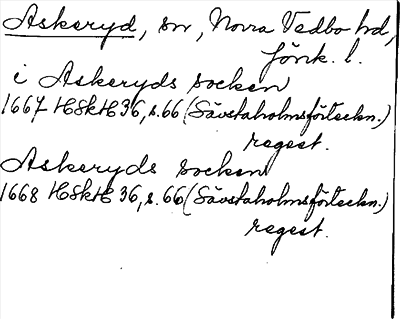 Askeryd, sn, Norra Vedbo hd,
Jönk. l.
i Askeryds socken
1667 HSkH 36, s. 66 (Sävstaholmsförteckn.)
regest.
Askeryds socken
1668 HSkH 36, s. 66 (Sävstaholmsförteckn.)
regest.